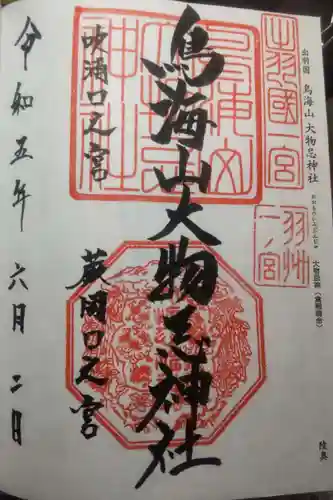 出羽國一宮
出羽国 鳥海山 大物忌神社
羽州一ノ宮
鳥海山大物忌神社
吹浦口之宮
蕨岡口之宮
令和五年 六月 二日
陸奥